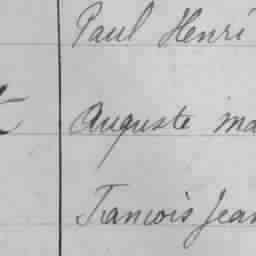 Paul Henri
Auguste ma
Francois Jean